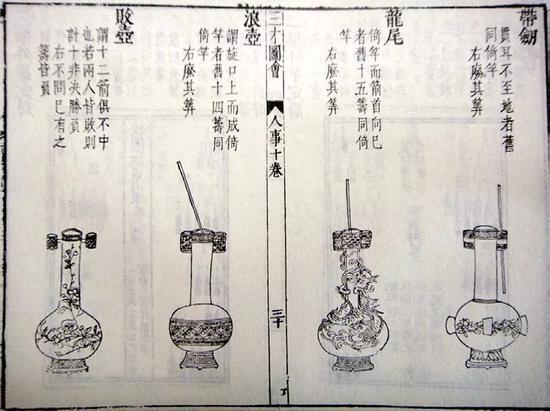 帶劒
貫耳不至地者舊
同倚竿
右廢其筭
龍尾
倚竿而箭首向已
者舊十五籌同倚
竿
右廢其筭
三才圖會
人事十卷
三十
浪壺
謂旋口上而成倚
竿者舊十四籌同
倚竿
右廢其筭
敗壺
謂十二箭俱不中
也若兩人皆敗則
計十非决勝負
右不問已有之
籌皆負